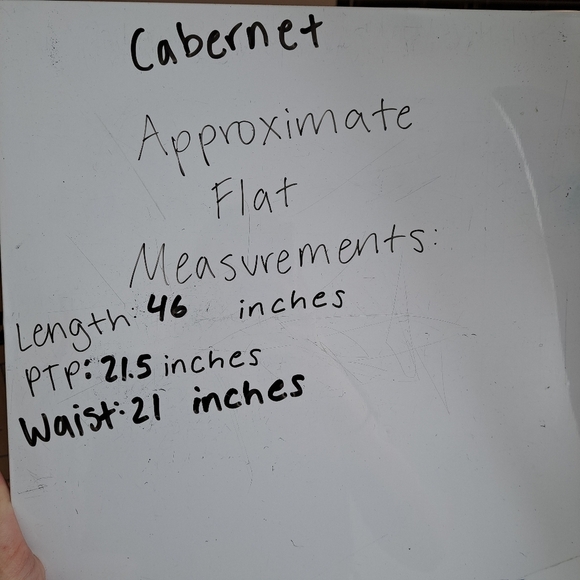 Cabernet
Approximate
Flat
Measurements:
Length: 46 inches
PTP: 21.5 inches
Waist: 21 inches